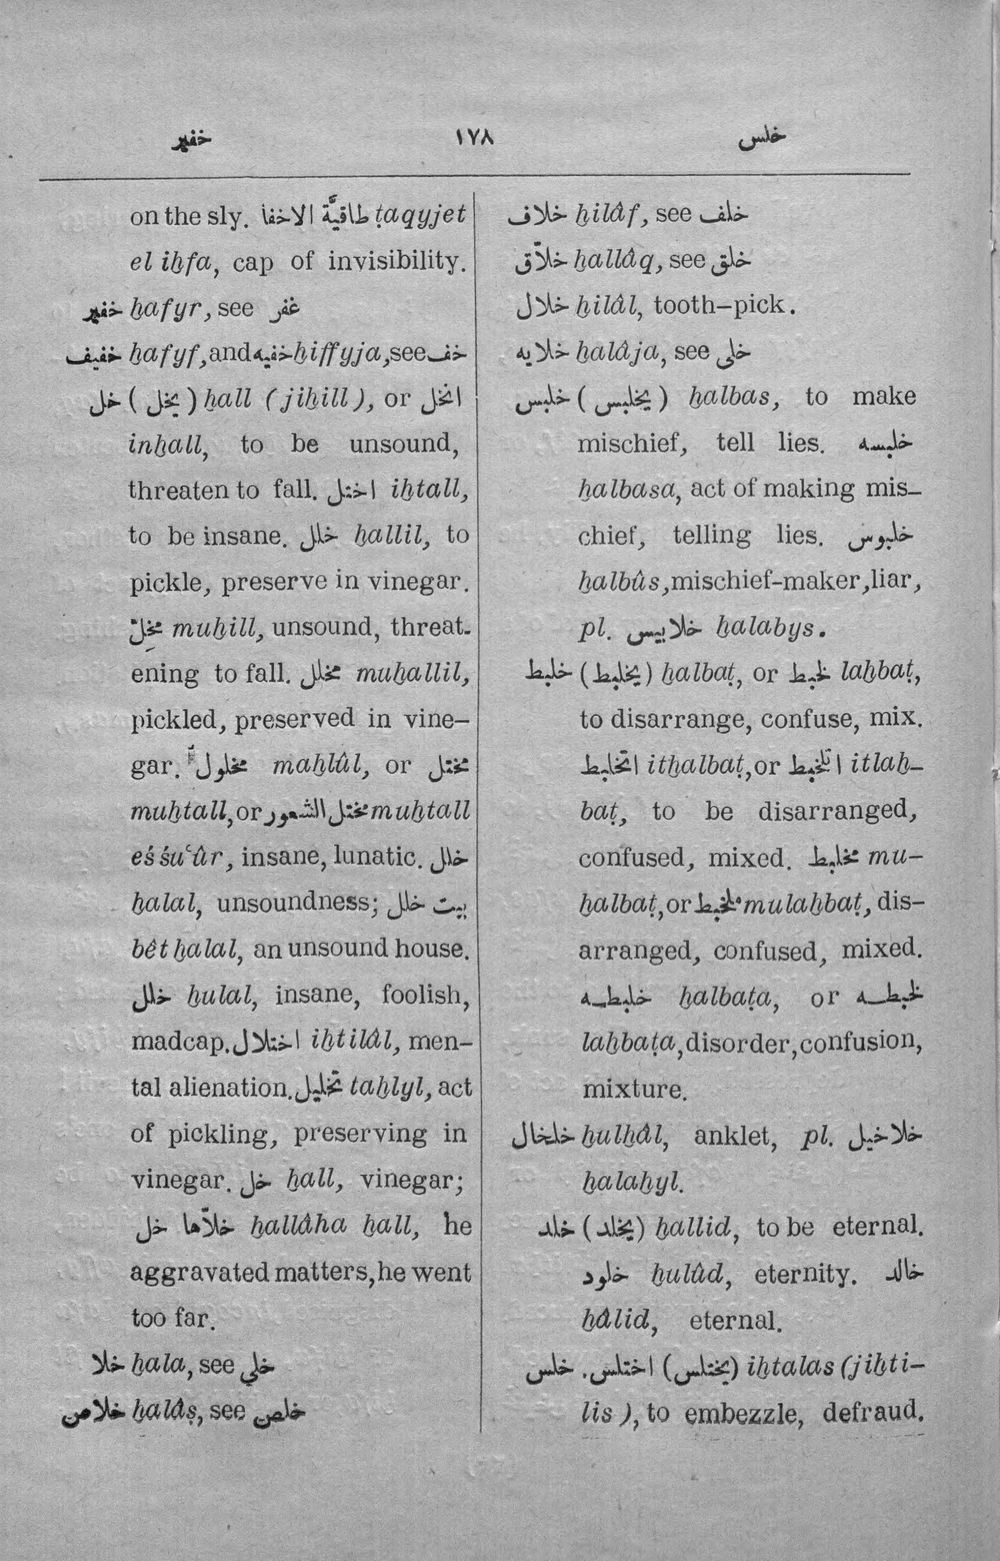 خفير ١٧٨ خلس
on the sly. طاقيَّة الاخفا ṭaqyjet
el iḫfa, cap of invisibility.
خفير ḫafyr, see غفر
خفيف ḫafyf, and خفيه ḫiffyja, see خف
خل (يخل) ḫall (jiḫill), or انخل
inḫall, to be unsound,
threaten to fall. اختل iḫtall,
to be insane. خلل ḫallil, to
pickle, preserve in vinegar.
مخِلّ muḫill, unsound, threat-
ening to fall. مخلل muḫallil,
pickled, preserved in vine-
gar. مخلول maḫlûl, or مختل
muḫtall, or مختل الشعور muḫtall
eśśuʿûr, insane, lunatic. خلل
ḫalal, unsoundness; بيت خلل
bêt ḫalal, an unsound house.
خلل ḫulal, insane, foolish,
madcap. اختلال iḫtilâl, men-
tal alienation. تخليل taḫlyl, act
of pickling, preserving in
vinegar. خل ḫall, vinegar;
خلّاها خل ḫallâha ḫall, he
aggravated matters, he went
too far.
خلا ḫala, see خلي
خلاص ḫalâṣ, see خلص
خلاف ḫilâf, see خلف
خلاّق ḫallâq, see خلق
خلال ḫilâl, tooth-pick.
خلايه ḫalâja, see خلى
خلبس (يخلبس) ḫalbas, to make
mischief, tell lies. خلبسه
ḫalbasa, act of making mis-
chief, telling lies. خلبوس
ḫalbûs, mischief-maker, liar,
pl. خلابيس ḫalabys.
خلبط (يخلبط) ḫalbaṭ, or لخبط laḫbaṭ,
to disarrange, confuse, mix.
اتخلبط itḫalbaṭ, or اتلخبط itlaḫ-
baṭ, to be disarranged,
confused, mixed. مخلبط mu-
ḫalbaṭ, or ملخبط mulaḫbaṭ, dis-
arranged, confused, mixed.
خلبطه ḫalbaṭa, or لخبطه
laḫbaṭa, disorder, confusion,
mixture.
خلخال ḫulḫâl, anklet, pl. خلاخيل
ḫalaḫyl.
خلد (يخلد) ḫallid, to be eternal.
خلود ḫulûd, eternity. خالد
ḫâlid, eternal.
خلس. اختلس (يختلس) iḫtalas (jiḫti-
lis), to embezzle, defraud.